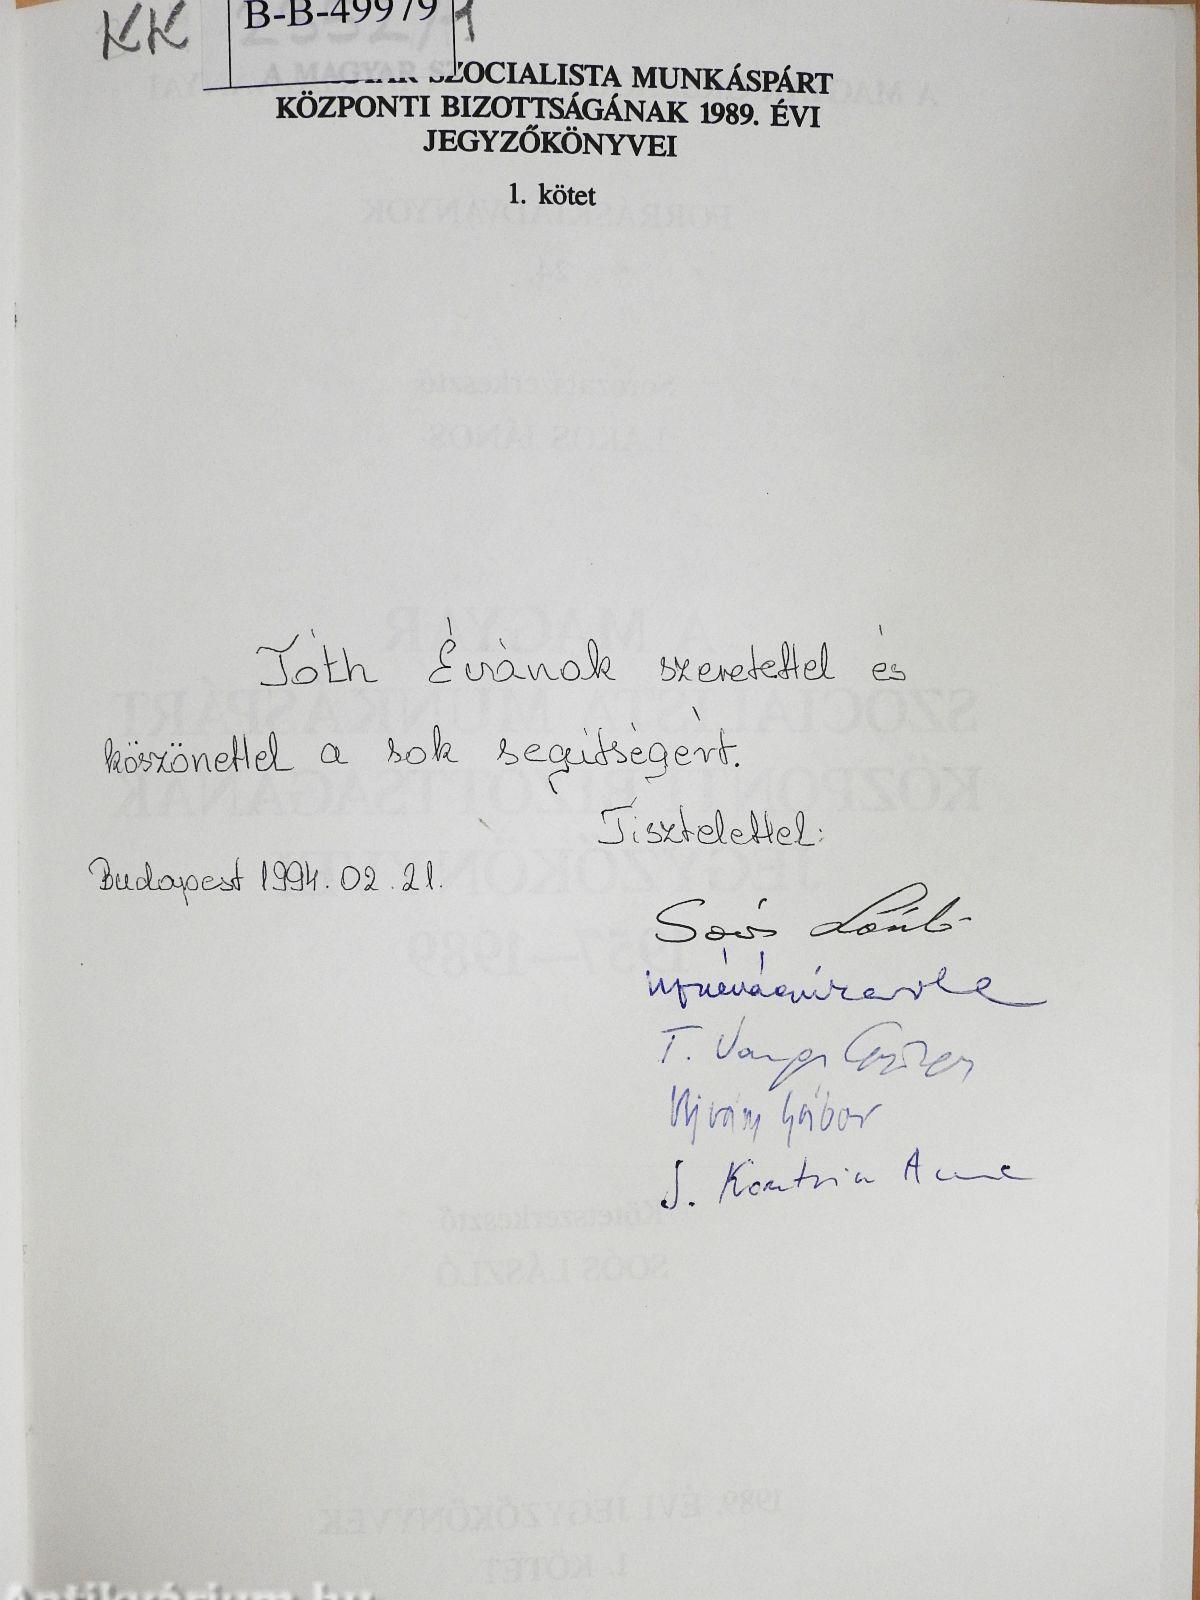 KK
B-B-49979
SZOCIALISTA MUNKÁSPÁRT
KÖZPONTI BIZOTTSÁGÁNAK 1989. ÉVI
JEGYZŐKÖNYVEI
1. kötet
Tóth Évának szeretettel és
köszönettel a sok segítségért.
Tisztelettel:
Budapest 1994. 02. 21.
Soós László
T. Varga György
Ujváry Gábor
S. Kosztricz Anna
Antikvárium.hu